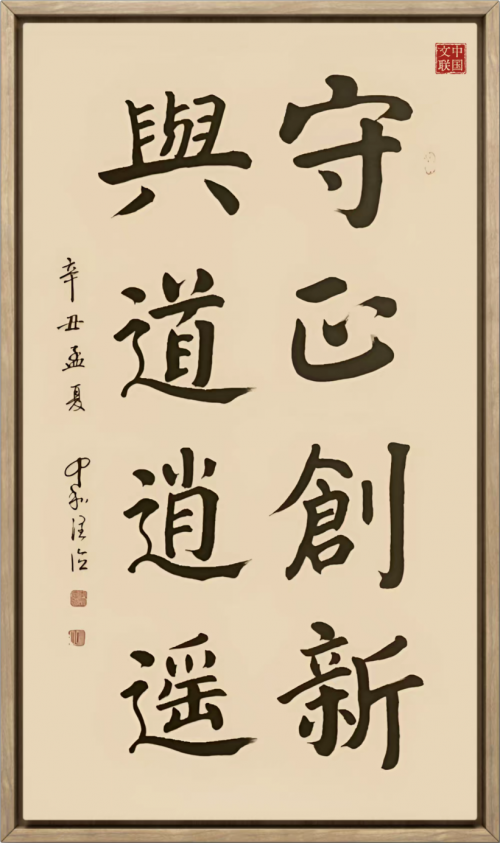 守正創新
與道逍遥
辛丑孟夏
中国文联